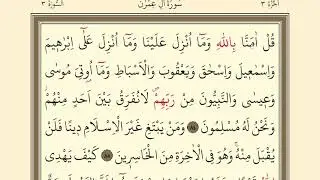 الجزء ٣ سورة آل عمران السورة ٣
قُلْ اٰمَنَّا بِاللّٰهِ وَمَٓا اُنْزِلَ عَلَيْنَا وَمَٓا اُنْزِلَ عَلٰٓى اِبْرٰه۪يمَ
وَاِسْمٰع۪يلَ وَاِسْحٰقَ وَيَعْقُوبَ وَالْاَسْبَاطِ وَمَٓا اُو۫تِيَ مُوسٰى
وَع۪يسٰى وَالنَّبِيُّونَ مِنْ رَبِّهِمْۖ لَا نُفَرِّقُ بَيْنَ اَحَدٍ مِنْهُمْۘ
وَنَحْنُ لَهُ مُسْلِمُونَ ﴿٨٤﴾ وَمَنْ يَبْتَغِ غَيْرَ الْاِسْلَامِ د۪ينًا فَلَنْ
يُقْبَلَ مِنْهُۚ وَهُوَ فِي الْاٰخِرَةِ مِنَ الْخَاسِر۪ينَ ﴿٨٥﴾ كَيْفَ يَهْدِي